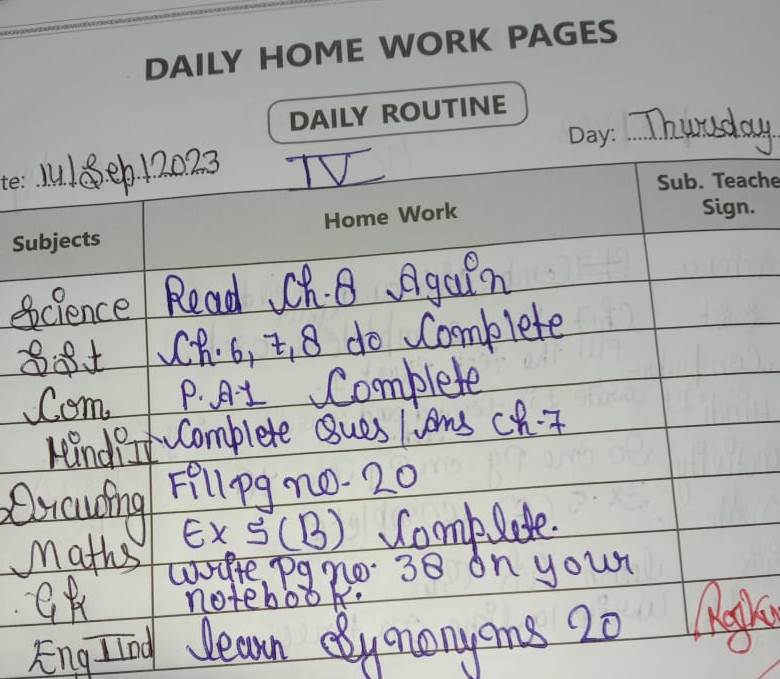 DAILY HOME WORK PAGES
DAILY ROUTINE
te: 14/Sep/2023 IV Day: Thursday
Subjects Home Work Sub. Teache
Sign.
Science Read Ch.8 Again
S.St Ch. 6, 7, 8 do Complete
Com. P.A.1 Complete
Hindi II Complete Ques/ans Ch-7
Drawing Fill pg no- 20
Maths Ex 5 (B) Complete.
GK write pg no. 38 on your
notebook.
Eng IInd learn Synonyms 20